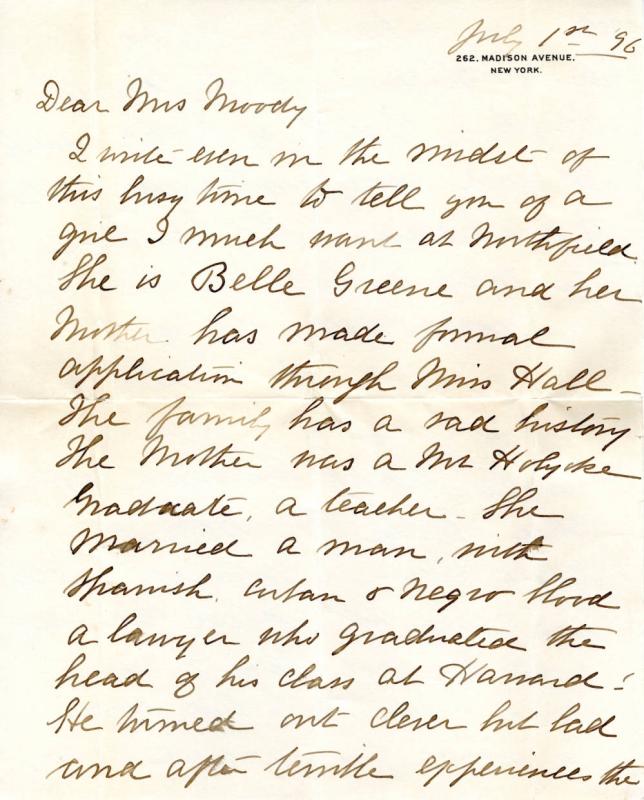 July 1st 96
262, MADISON AVENUE.
NEW YORK.
Dear Mrs Moody
I write even in the midst of
this busy time to tell you of a
girl I much want at Northfield.
She is Belle Greene and her
Mother has made formal
application through Miss Hall -
The family has a sad history
The Mother was a Mt Holyoke
Graduate, a teacher - She
married a man, with
Spanish, Cuban & Negro blood
a lawyer who graduated the
head of his class at Harvard!
He turned out clever but bad
and after terrible experiences the